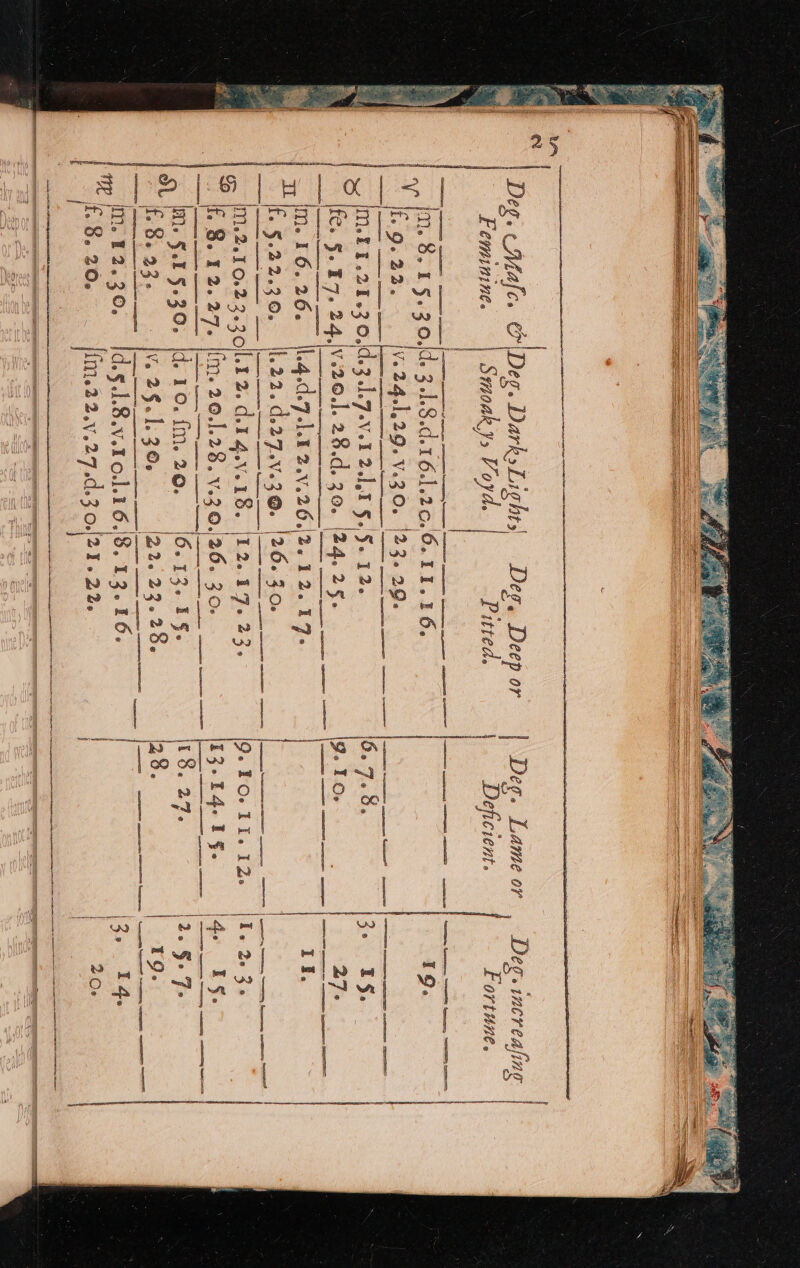 25
Deg. Masc. & Deg. Dark, Light, Deg. Deep or Deg. Lame or Deg. increasing
Feminine. Smoaky, Voyd. Pitted. Deficient. Fortune.
♈ m. 8. 15. 30. d. 3. l. 8. d. 16. l. 20. 6. 11. 16. 19.
f. 9. 22. v. 24. l. 29. v. 30. 23. 29.
♉ m. 11. 21. 30. d. 3. l. 7. v. 12. l. 15. 5. 12. 6. 7. 8. 3. 15.
fe. 5. 17. 24. v. 20. l. 28. d. 30. 24. 25. 9. 10. 27.
♊ m. 16. 26. l. 4. d. 7. l. 12. v. 26. 2. 12. 17. 11.
f. 5. 22. 30. l. 22. d. 27. v. 30. 26. 30.
♋ m. 2. 10. 23. 30 l. 12. d. 14. v. 18. 12. 17. 23. 9. 10. 11. 12. 1. 2. 3.
f. 8. 12. 27. sm. 20. l. 28. v. 30. 26. 30. 13. 14. 15. 4. 15.
♌ m. 5. 15. 30. d. 10. sm. 20. 6. 13. 15. 18. 27. 2. 5. 7.
f. 8. 23. v. 25. l. 30. 22. 23. 28. 28. 19.
♍ m. 12. 30. d. 5. l. 8. v. 10. l. 16. 8. 13. 16. 3. 14.
f. 8. 20. sm. 22. v. 27. d. 30. 21. 22. 20.